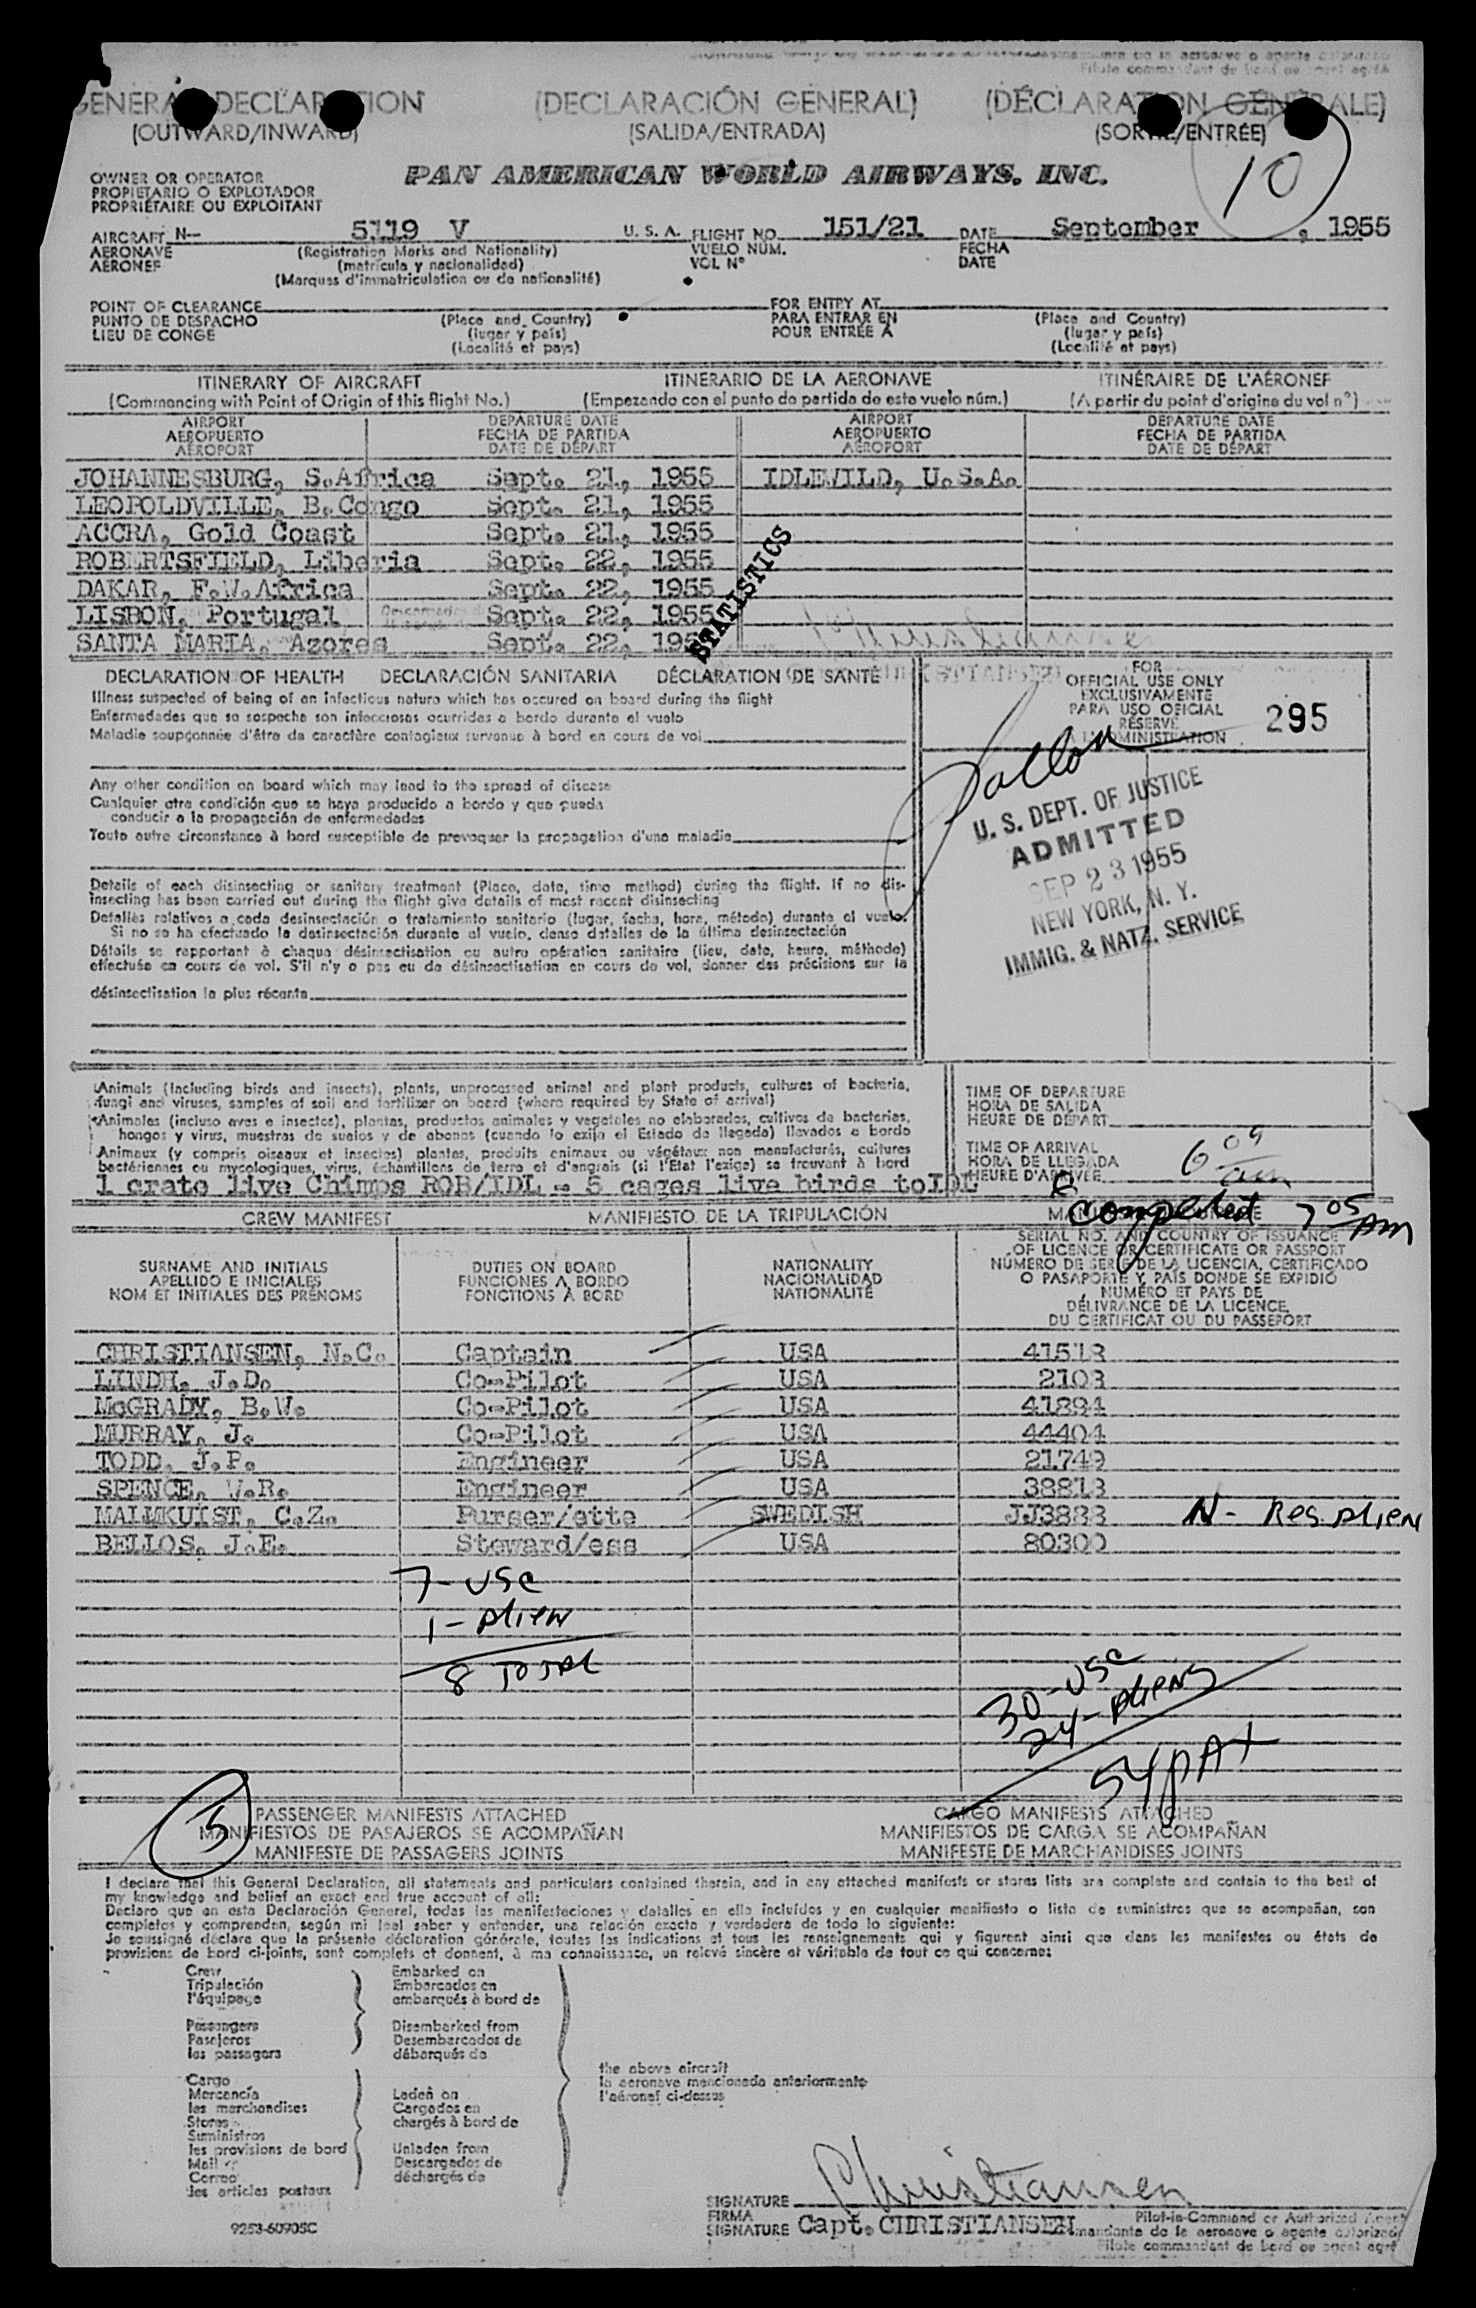 GENERAL DECLARATION (DECLARACIÓN GENERAL) (DÉCLARATION GÉNÉRALE)
(OUTWARD/INWARD) (SALIDA/ENTRADA) (SORTIE/ENTRÉE)
10
OWNER OR OPERATOR
PROPIETARIO O EXPLOTADOR
PROPRIÉTAIRE OU EXPLOITANT
PAN AMERICAN WORLD AIRWAYS, INC.
AIRCRAFT N-- 5119 V U. S. A. FLIGHT NO. 151/21 DATE September , 1955
AERONAVE (Registration Marks and Nationality) VUELO NÚM. FECHA
AÉRONEF (matrícula y nacionalidad) VOL Nº DATE
(Marques d'immatriculation ou de nationalité)
POINT OF CLEARANCE FOR ENTRY AT
PUNTO DE DESPACHO (Place and Country) PARA ENTRAR EN (Place and Country)
LIEU DE CONGE (lugar y país) POUR ENTRÉE A (lugar y país)
(Localité et pays) (Localité et pays)
ITINERARY OF AIRCRAFT ITINERARIO DE LA AERONAVE ITINÉRAIRE DE L'AÉRONEF
(Commencing with Point of Origin of this flight No.) (Empezando con el punto de partida de este vuelo núm.) (A partir du point d'origine du vol nº)
AIRPORT DEPARTURE DATE AIRPORT DEPARTURE DATE
AEROPUERTO FECHA DE PARTIDA AEROPUERTO FECHA DE PARTIDA
AÉROPORT DATE DE DÉPART AÉROPORT DATE DE DÉPART
JOHANNESBURG, S.Africa Sept. 21, 1955 IDLEWILD, U.S.A.
LEOPOLDVILLE, B.Congo Sept. 21, 1955
ACCRA, Gold Coast Sept. 21, 1955
ROBERTSFIELD, Liberia Sept. 22, 1955
DAKAR, F.W.Africa Sept. 22, 1955
LISBON, Portugal Sept. 22, 1955
SANTA MARIA, Azores Sept. 22, 195
STATISTICS
DECLARATION OF HEALTH DECLARACIÓN SANITARIA DÉCLARATION DE SANTÉ
Illness suspected of being of an infectious nature which has occured on board during the flight
Enfermedades que se sospecha son infecciosas ocurridas a bordo durante el vuelo
Maladie soupçonnée d'être de caractère contagieux survenue à bord en cours de vol
FOR
OFFICIAL USE ONLY
EXCLUSIVAMENTE
PARA USO OFICIAL
RÉSERVÉ
A L'ADMINISTRATION
295
Any other condition on board which may lead to the spread of disease
Cualquier otra condición que se haya producido a bordo y que pueda
conducir a la propagación de enfermedades
Toute autre circonstance à bord susceptible de provoquer la propagation d'une maladie
U. S. DEPT. OF JUSTICE
ADMITTED
SEP 23 1955
NEW YORK, N. Y.
IMMIG. & NATZ. SERVICE
Details of each disinsecting or sanitary treatment (Place, date, time method) during the flight. If no dis-
insecting has been carried out during the flight give details of most recent disinsecting
Detalles relativos a cada desinsectación o tratamiento sanitario (lugar, fecha, hora, método) durante el vuelo.
Si no se ha efectuado la desinsectación durante el vuelo, dense detalles de la última desinsectación
Détails se rapportant à chaque désinsectisation ou autre opération sanitaire (lieu, date, heure, méthode)
effectuée en cours de vol. S'il n'y a pas eu de désinsectisation en cours de vol, donner des précisions sur la
désinsectisation la plus récente
Animals (including birds and insects), plants, unprocessed animal and plant products, cultures of bacteria,
fungi and viruses, samples of soil and fertilizer on board (where required by State of arrival)
Animales (incluso aves e insectos), plantas, productos animales y vegetales no elaborados, cultivos de bacterias,
hongos y virus, muestras de suelos y de abonos (cuando lo exija el Estado de llegada) llevados a bordo
Animaux (y compris oiseaux et insectes) plantes, produits animaux ou végétaux non manufacturés, cultures
bactériennes ou mycologiques, virus, échantillons de terre et d'engrais (si l'Etat l'exige) se trouvant à bord
1 crate live Chimps ROB/IDL - 5 cages live birds toIDL
TIME OF DEPARTURE
HORA DE SALIDA
HEURE DE DÉPART
TIME OF ARRIVAL
HORA DE LLEGADA
HEURE D'ARRIVÉE
6 05 am
Completed 7 05 AM
CREW MANIFEST MANIFIESTO DE LA TRIPULACIÓN
SURNAME AND INITIALS
APELLIDO E INICIALES
NOM ET INITIALES DES PRÉNOMS
DUTIES ON BOARD
FUNCIONES A BORDO
FONCTIONS A BORD
NATIONALITY
NACIONALIDAD
NATIONALITÉ
SERIAL NO. AND COUNTRY OF ISSUANCE
OF LICENCE OR CERTIFICATE OR PASSPORT
NÚMERO DE SERIE DE LA LICENCIA, CERTIFICADO
O PASAPORTE Y PAÍS DONDE SE EXPIDIÓ
NUMÉRO ET PAYS DE
DÉLIVRANCE DE LA LICENCE,
DU CERTIFICAT OU DU PASSEPORT
CHRISTIANSEN, N.C. Captain USA 41513
LINDH, J.D. Co-Pilot USA 2103
McGRADY, B.W. Co-Pilot USA 41894
MURRAY, J. Co-Pilot USA 44404
TODD, J.P. Engineer USA 21749
SPENCE, W.R. Engineer USA 38813
MALMKUIST, C.Z. Purser/ette SWEDISH JJ3883 N - Res Alien
BELLOS, J.E. Steward/ess USA 80300
7 - USC
1 - Alien
8 TOTAL
30 - USC
24 - Aliens
54 PAX
5
PASSENGER MANIFESTS ATTACHED CARGO MANIFESTS ATTACHED
MANIFIESTOS DE PASAJEROS SE ACOMPAÑAN MANIFIESTOS DE CARGA SE ACOMPAÑAN
MANIFESTE DE PASSAGERS JOINTS MANIFESTE DE MARCHANDISES JOINTS
I declare that this General Declaration, all statements and particulars contained therein, and in any attached manifests or stores lists are complete and contain to the best of
my knowledge and belief an exact and true account of all:
Declaro que en esta Declaración General, todas las manifestaciones y detalles en ella incluidos y en cualquier manifiesto o lista de suministros que se acompañan, son
completos y comprenden, según mi leal saber y entender, una relación exacta y verdadera de todo lo siguiente:
Je soussigné déclare que la présente déclaration générale, toutes les indications et tous les renseignements qui y figurent ainsi que dans les manifestes ou états de
provisions de bord ci-joints, sont complets et donnent, à ma connaissance, un relevé sincère et véritable de tout ce qui concerne:
Crew Embarked on
Tripulación Embarcados en
l'équipage embarqués à bord de
Passengers Disembarked from
Pasajeros Desembarcados de
les passagers débarqués de
the above aircraft
la aeronave mencionada anteriormente
l'aéronef ci-dessus
Cargo
Mercancía Laden on
les marchandises Cargados en
Stores chargés à bord de
Suministros
les provisions de bord Unladen from
Mail Descargados de
Correo déchargés de
les articles postaux
9253-60905C
SIGNATURE Christiansen
FIRMA Pilot-in-Command or Authorized Agent
SIGNATURE Capt. CHRISTIANSEN mandante de la aeronave o agente autorizado
Pilote commandant de bord ou agent agréé